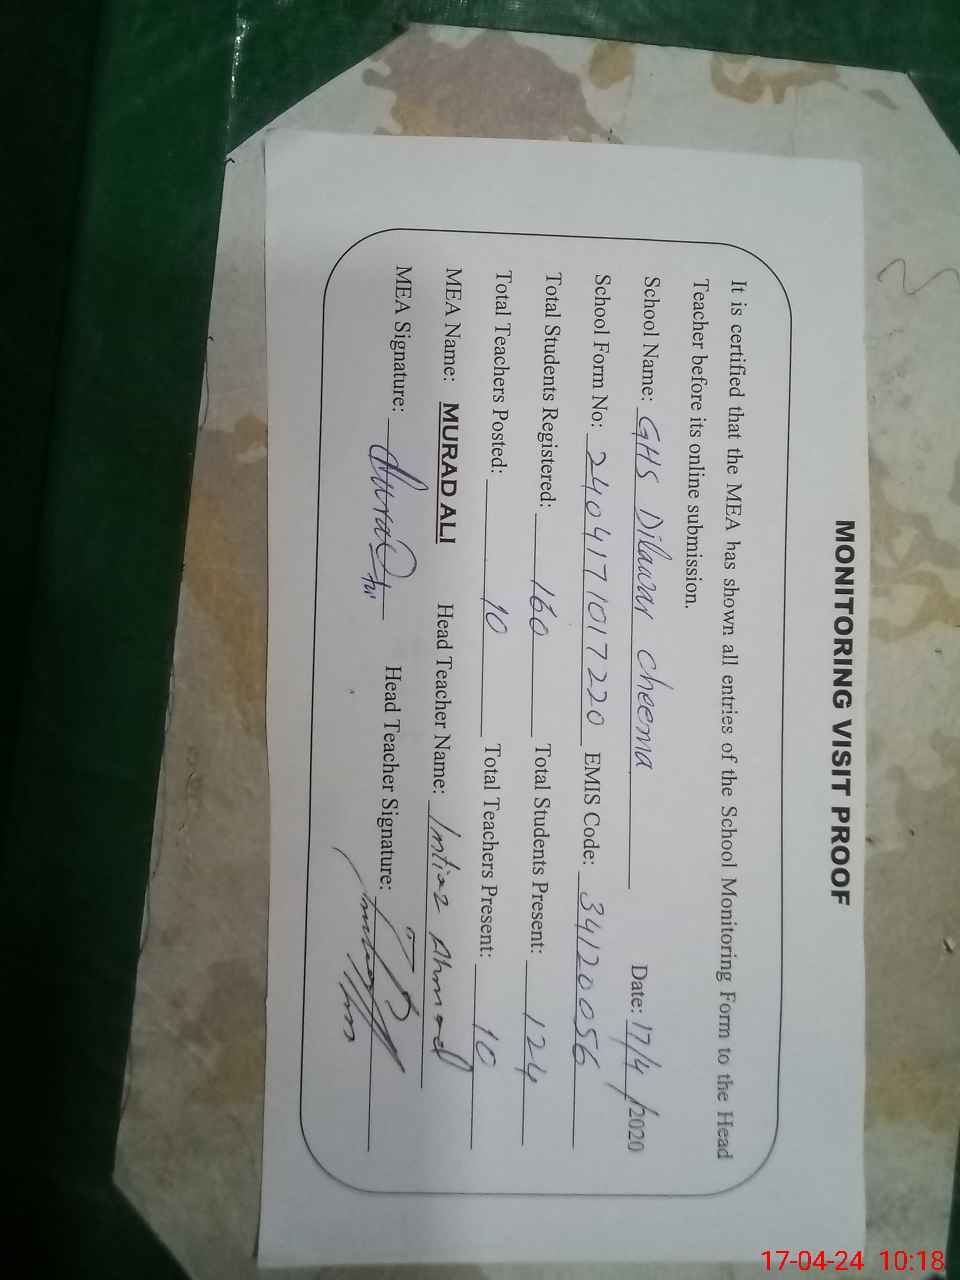 MONITORING VISIT PROOF
It is certified that the MEA has shown all entries of the School Monitoring Form to the Head
Teacher before its online submission.
School Name: GHS Dilawar Cheema Date: 17/4/2020
School Form No: 2404171017220 EMIS Code: 34120056
Total Students Registered: 160 Total Students Present: 124
Total Teachers Posted: 10 Total Teachers Present: 10
MEA Name: MURAD ALI Head Teacher Name: Imtiaz Ahmad
MEA Signature: Head Teacher Signature:
17-04-24 10:18